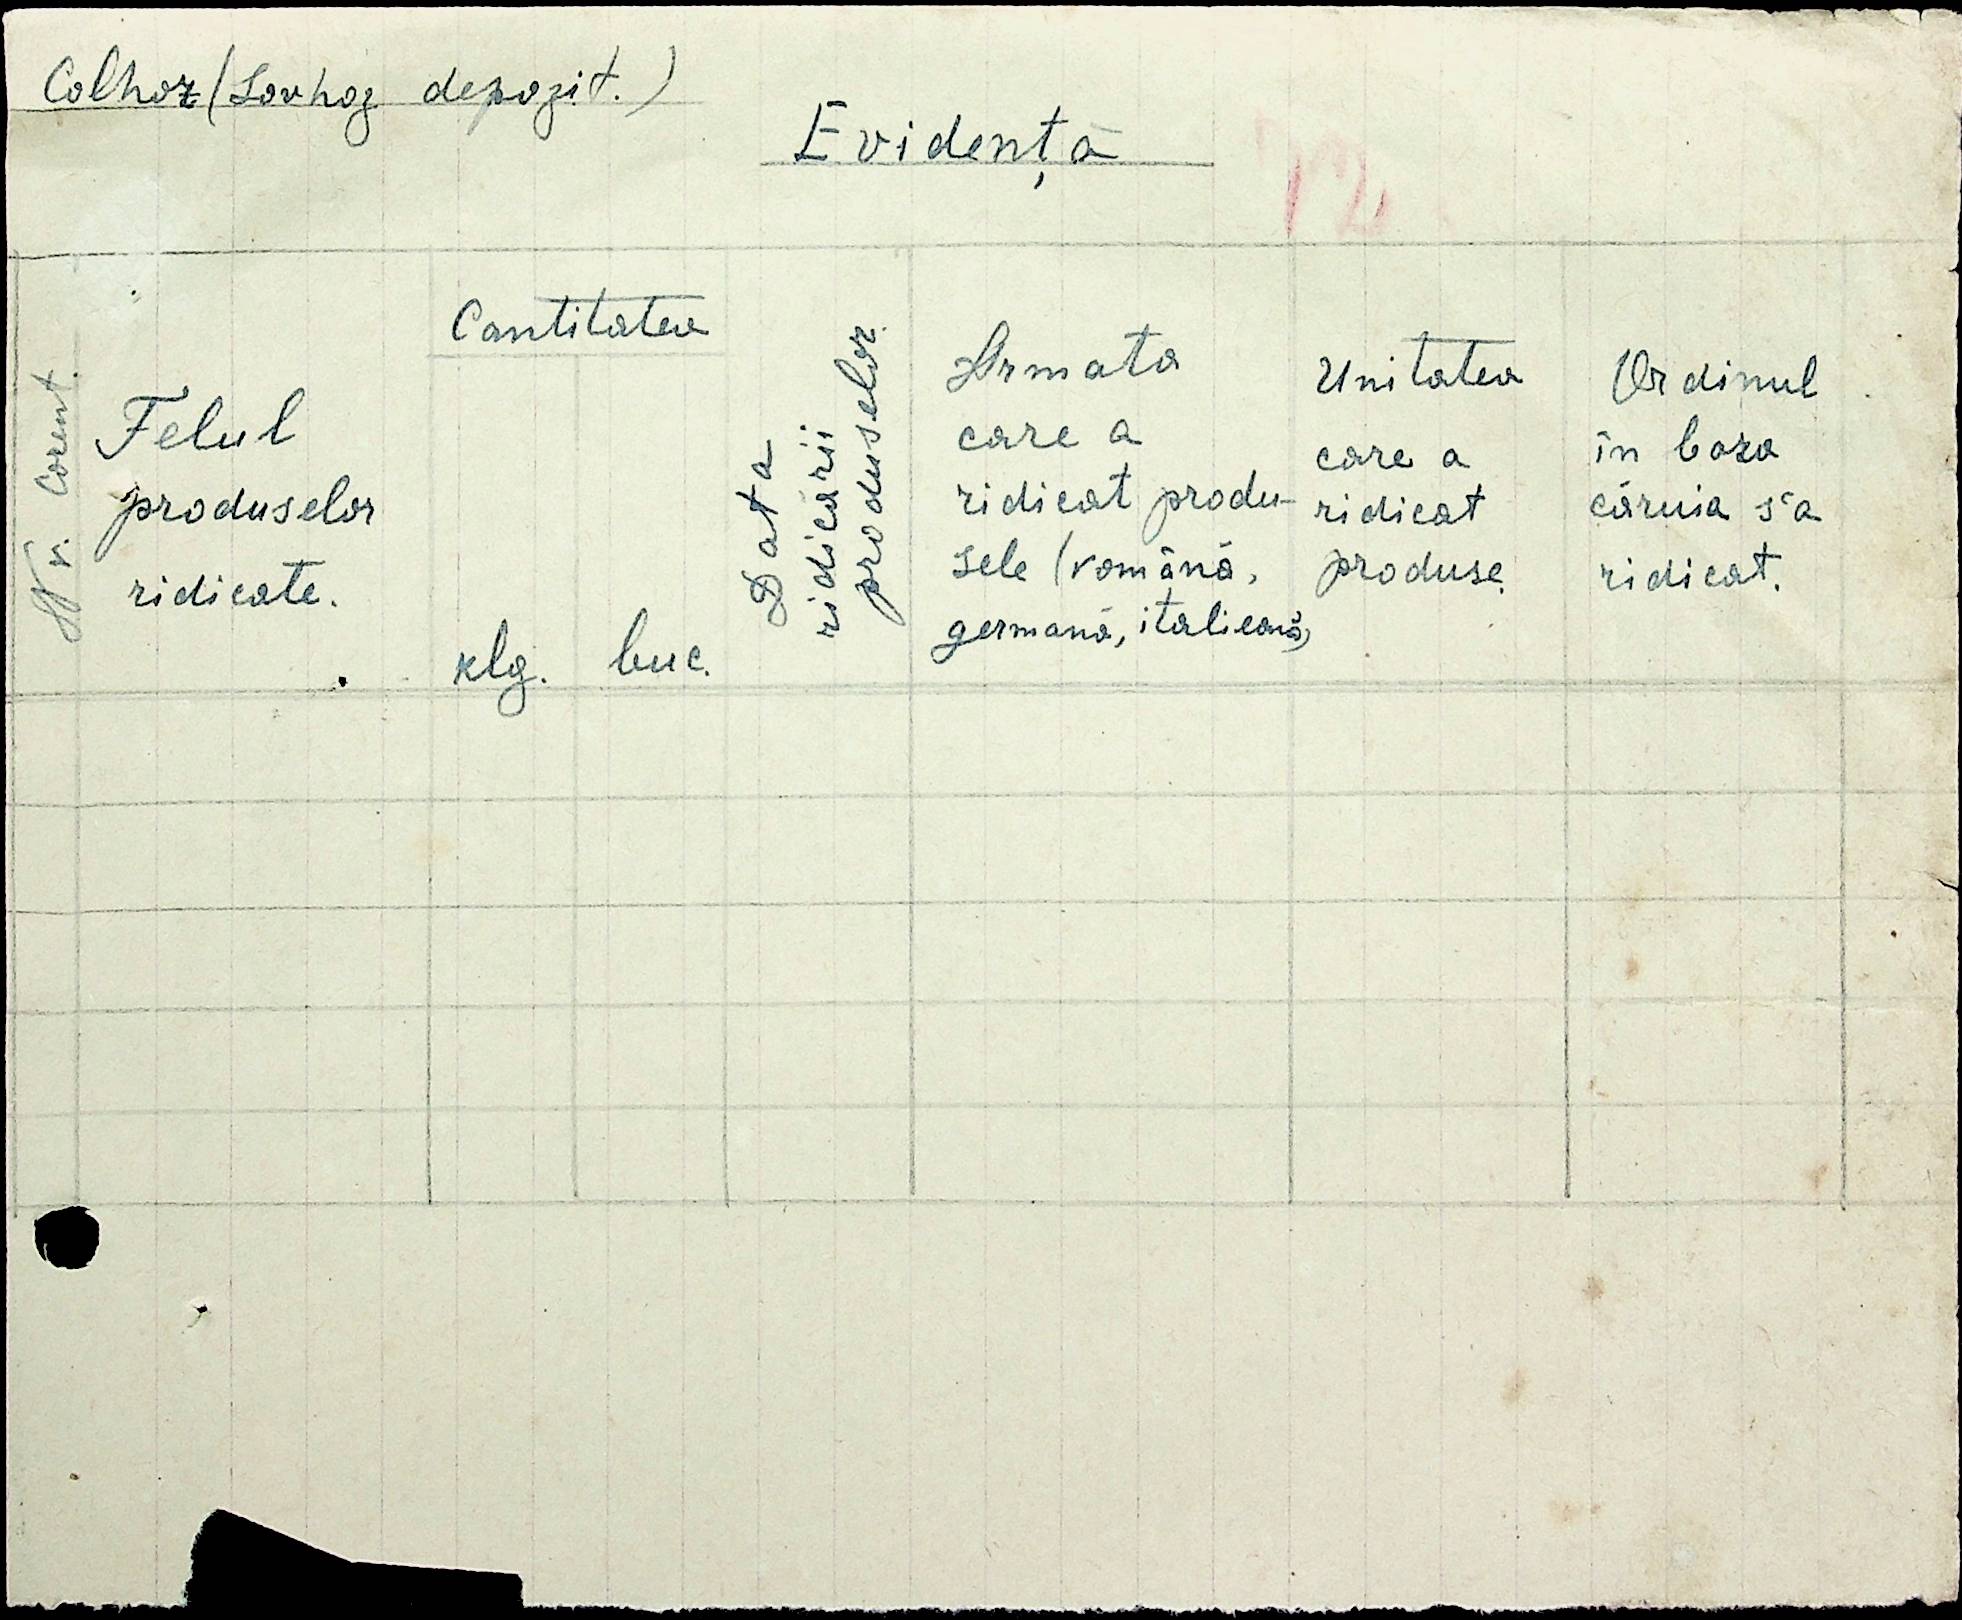 Colhoz (Sovhoz depozit.)
Evidență
Nr. Corent.
Felul
produselor
ridicate.
Cantitatea
klg. buc.
Data
ridicării
produselor.
Armata
care a
ridicat produ-
sele (română,
germană, italiană)
Unitatea
care a
ridicat
produse.
Ordinul
în baza
căruia s'a
ridicat.